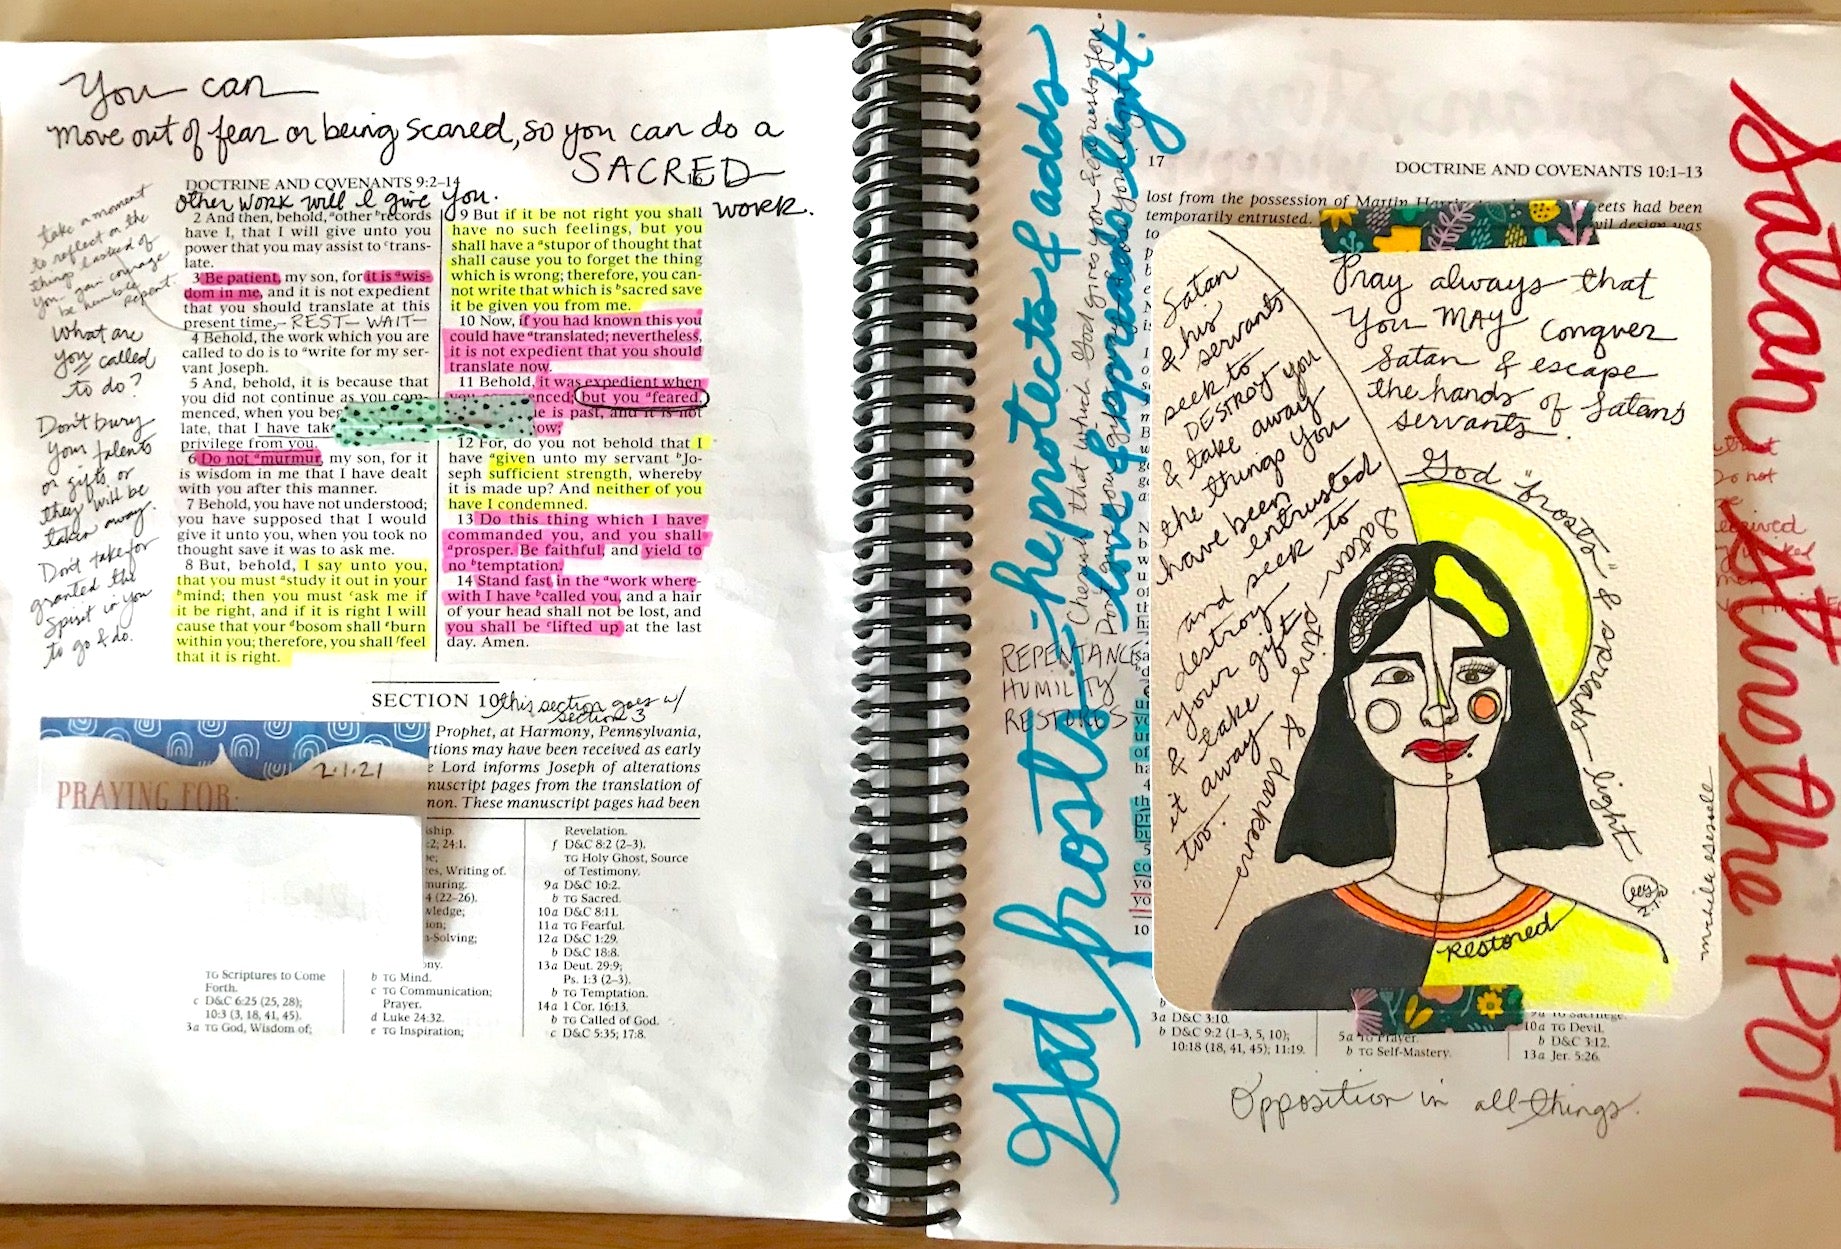 You can
move out of fear or being scared, so you can do a
SACRED
work.
DOCTRINE AND COVENANTS 9:2–14
other work will I give you.
take a moment
to reflect on the
things
you gain courage
be humble
repent.
What are
you called
to do?
Don't bury
your talents
or gifts, or
they will be
taken away.
Don't take for
granted the
Spirit in you
to go & do.
2 And then, behold, aother brecords
have I, that I will give unto you
power that you may assist to ctrans-
late.
3 Be patient, my son, for it is awis-
dom in me, and it is not expedient
that you should translate at this
present time. – REST – WAIT –
4 Behold, the work which you are
called to do is to awrite for my ser-
vant Joseph.
5 And, behold, it is because that
you did not continue as you com-
menced, when you beg
late, that I have tak
privilege from you.
6 Do not amurmur, my son, for it
is wisdom in me that I have dealt
with you after this manner.
7 Behold, you have not understood;
you have supposed that I would
give it unto you, when you took no
thought save it was to ask me.
8 But, behold, I say unto you,
that you must astudy it out in your
bmind; then you must cask me if
it be right, and if it is right I will
cause that your dbosom shall eburn
within you; therefore, you shall ffeel
that it is right.
9 But if it be not right you shall
have no such feelings, but you
shall have a astupor of thought that
shall cause you to forget the thing
which is wrong; therefore, you can-
not write that which is bsacred save
it be given you from me.
10 Now, if you had known this you
could have atranslated; nevertheless,
it is not expedient that you should
translate now.
11 Behold, it was expedient when
you commenced; but you afeared,
e is past, and it is not
ow;
12 For, do you not behold that I
have agiven unto my servant bJo-
seph sufficient strength, whereby
it is made up? And neither of you
have I condemned.
13 Do this thing which I have
commanded you, and you shall
aprosper. Be faithful, and yield to
no btemptation.
14 Stand fast in the awork where-
with I have bcalled you, and a hair
of your head shall not be lost, and
you shall be clifted up at the last
day. Amen.
SECTION 10
this section goes w/
section 3
2.1.21
PRAYING FOR:
Prophet, at Harmony, Pennsylvania,
rtions may have been received as early
e Lord informs Joseph of alterations
nuscript pages from the translation of
mon. These manuscript pages had been
ship.
:2; 24:1.
es, Writing of.
muring.
4 (22–26).
wledge;
ion;
-Solving;
ony.
TG Scriptures to Come
Forth.
c D&C 6:25 (25, 28);
10:3 (3, 18, 41, 45).
3a TG God, Wisdom of;
b TG Mind.
c TG Communication;
Prayer.
d Luke 24:32.
e TG Inspiration;
Revelation.
f D&C 8:2 (2–3).
TG Holy Ghost, Source
of Testimony.
9a D&C 10:2.
b TG Sacred.
10a D&C 8:11.
11a TG Fearful.
12a D&C 1:29.
b D&C 18:8.
13a Deut. 29:9;
Ps. 1:3 (2–3).
b TG Temptation.
14a 1 Cor. 16:13.
b TG Called of God.
c D&C 5:35; 17:8.
God frosts – he protects & adds
love & spreads light.
Cherish that which God gives you & entrusts you.
REPENTANCE
HUMILITY
RESTORES
17
DOCTRINE AND COVENANTS 10:1–13
lost from the possession of Martin Har
eets had been
temporarily entrusted.
vil design was
to
Satan
& his
servants
seek to
DESTROY you
& take away
the things you
have been
entrusted
and seek to
destroy
your gift
& take
it away
too.
Satan
stirs &
darkens
Pray always that
you MAY conquer
Satan & escape
the hands of Satan's
servants.
God "frosts" & spreads light
Restored
michelaesesele
Satan Stirs the POT
10
3a D&C 3:10.
b D&C 9:2 (1–3, 5, 10);
10:18 (18, 41, 45); 11:19.
5a TG Prayer.
b TG Self-Mastery.
9a TG Sacrilege.
10a TG Devil.
b D&C 3:12.
13a Jer. 5:26.
Opposition in all things.